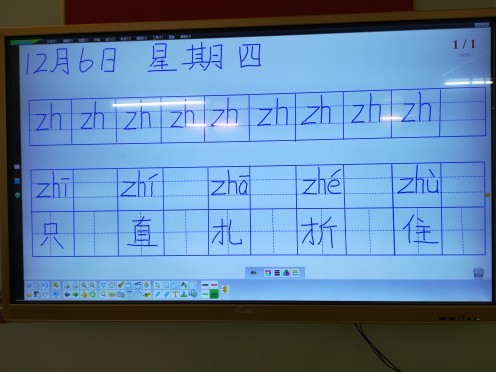 1 / 1
12月6日 星期四
zh zh zh zh zh zh zh zh zh
zhī zhí zhā zhé zhù
只 直 扎 折 住